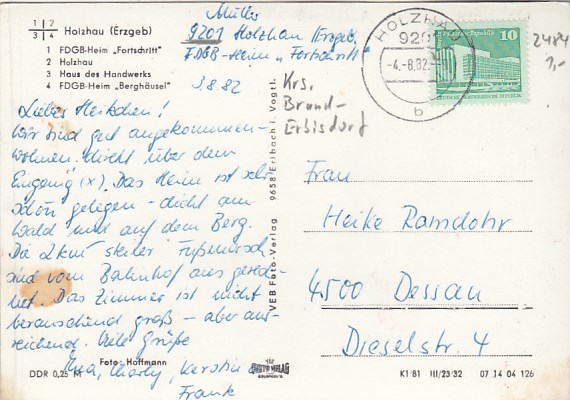 1 | 2
3 | 4
Holzhau (Erzgeb)
1 FDGB-Heim „Fortschritt"
2 Holzhau
3 Haus des Handwerks
4 FDGB-Heim „Berghäusel"
Müller
9201 Holzhau (Erzgeb.
FDGB-Heim „Fortschritt"
3.8.82
Liebes Heikchen!
Wir sind gut angekommen -
wohnen direkt über dem
Eingang (x). Das Heim ist sehr
schön gelegen - dicht am
Wald und auf dem Berg.
Die 2 km steiler Fußmarsch
sind vom Bahnhof aus gerech-
net. Das Zimmer ist nicht
berauschend groß - aber aus-
reichend. Viele Grüße
Charly, Kerstin
Frank
Foto: Hoffmann
DDR 0,25 M
VEB Foto-Verlag 9658 Erlbach i. Vogtl.
HOLZHAU
920
-4.-8.82
b
10
2484
1,-
Krs.
Brand-
Erbisdorf
Frau
Heike Ramdohr
4500 Dessau
Dieselstr. 4
K1/81 III/23/32 07 14 04 126